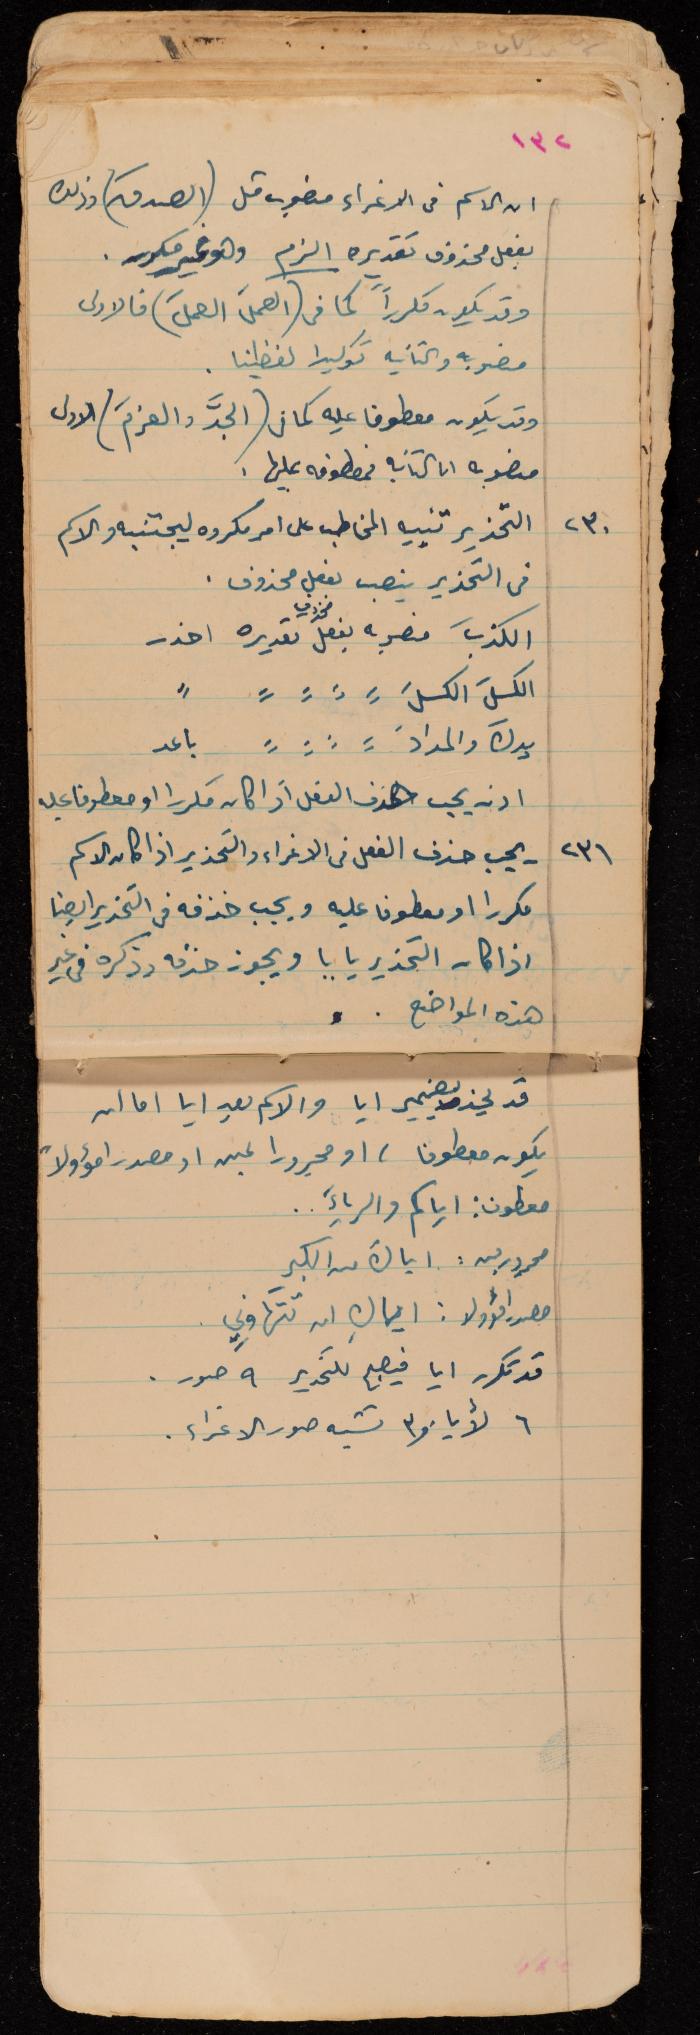 ١٣٢
ان الاسم فى الاغراء منصوب مثل (الصدقَ) وذلك
بفعل محذوف تقديره الزم وهو غير مكرر .
وقد يكون مكرراً كما فى (العملَ العملَ) فالاولى
منصوبه والثانيه توكيدا لفظيا .
وقد يكون معطوفا عليه كما فى (الجدَّ والعزمَ) الاولى
منصوبه اما الثانيه فمعطوفه عليها .
٢٣٠ التحذير تنبيه المخاطب على امر مكروه ليجتنبه والاسم
فى التحذير ينصب بفعل محذوف .
الكذبَ منصوبه بفعل محذوف تقديره احذر
الكسلَ الكسلَ " " " " "
يدكَ والمدادَ " " " " باعد
اذن يجب حذف الفعل اذا كان مكررا او معطوفا عليه
٢٣١ - يجب حذف الفعل فى الاغراء والتحذير اذا كان الاسم
مكررا او معطوفا عليه ويجب حذفه فى التحذير ايضا
اذا كان التحذير بايا ويجوز حذفه وذكره فى غير
هذه المواضع .
قد يحذر بضمير ايا والاسم بعد ايا اما ان
يكون معطوفا ، او مجرورا بمن او مصدرا مؤولا
معطوف : اياكم والرياءَ ..
مجرور بمن : اياكَ من الكبرِ
مصدرا مؤولا : اياكِ ان تتهاونى .
قد تكرر ايا فيصبح للتحذير ٩ صور .
٦ لأيا و ٣ تشبه صور الاغراء .